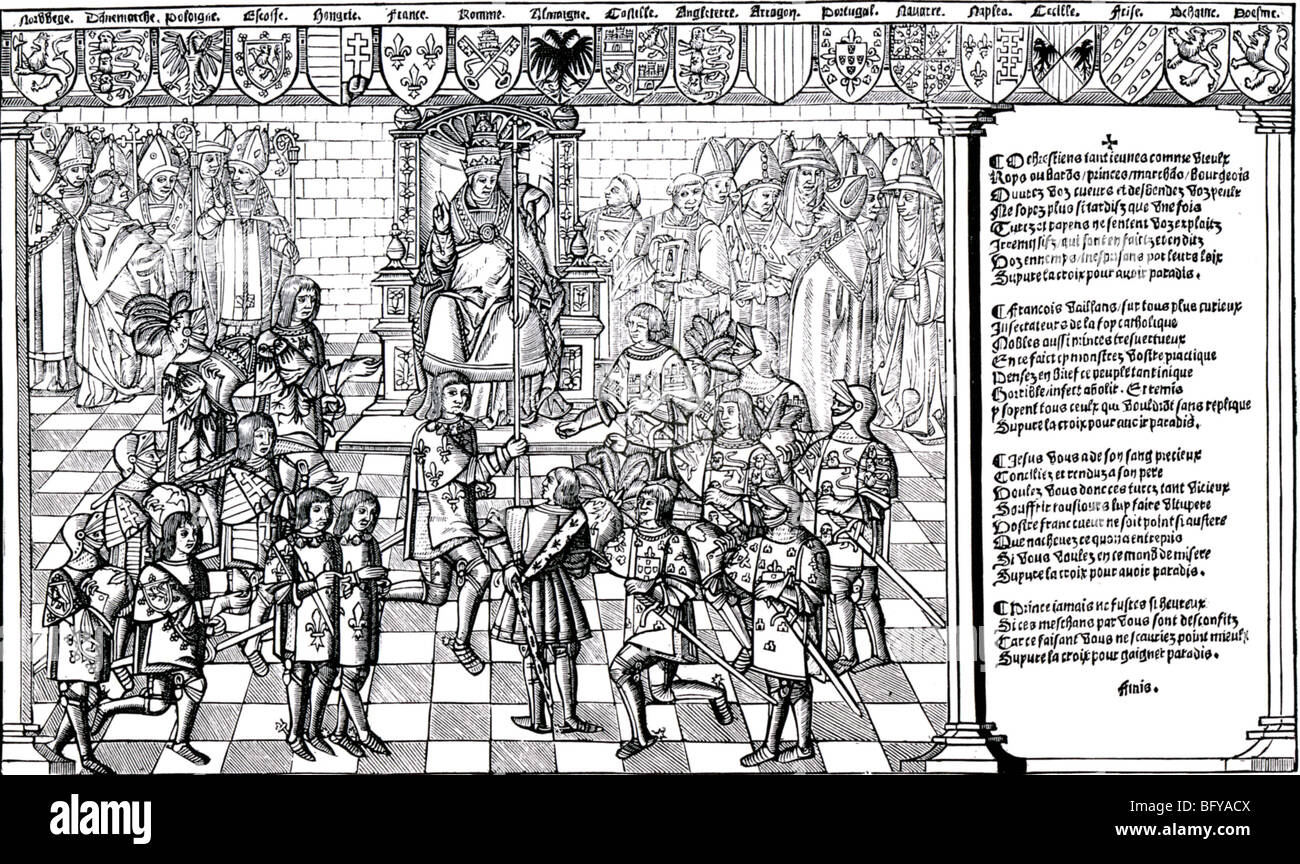 Norvvege. Dānemarche. Poloigne. Escosse. Hongrie. France. Romme. Almaigne. Castille. Angleterre. Arragon. Portugal. Navarre. Naples. Cecille. Frise. Behaine. Boesme.
O chrestiens tant ieunes comme vieulx
Roys ou Bardz / princes / marchās / Bourgeois
Ouurez voz cueurs et desbendez voz yeulx
Ne soyez plus si tardifz que vne fois
Turcz et payens ne sentent voz exploitz
Irremissifz, qui sont en faitz et en ditz
Voz ennemys / par leurs loix
Supure la croix pour auoir paradis.
Francois vaillans / sur tous plus curieux
Insecateurs de la foy catholique
Nobles aussi princes tresuertueux
En ce fait cy monstrez vostre practique
Pensez en brief ce peuple tant inique
Horrible / infect abolir. Et remis
y soyent tous ceulx qui vouldrōt sans replique
Supure la croix pour auoir paradis.
Jesus vous a de son sang precieux
Conciliez et renduz a son pere
Voulez vous donc ces turcz tant vicieux
Souffrir tousiours luy faire vitupere
Vostre franc cueur ne soit point si austere
Que nacheuez ce quon a entrepis
Si vous voulez en ce mond de misere
Supure la croix pour auoir paradis.
Prince iamais ne fustes si heureux
Si ces meschans par vous sont desconfitz
Car ce faisant vous ne scauriez point mieulx
Supure la croix pour gaigner paradis.
Finis.
alamy
Image ID: BFYACX
www.alamy.com